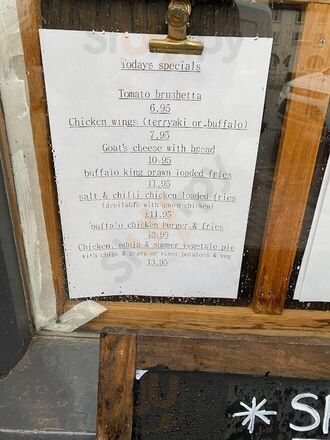 Todays specials
Tomato brushetta
6.95
Chicken wings (terryaki or buffalo)
7.95
Goat's cheese with bread
10.95
buffalo king prawn loaded fries
11.95
salt & chilli chicken loaded fries
(available with quorn chicken)
£11.95
buffalo chicken burger & fries
13.95
Chicken, nduja & summer vegetale pie
with chips & gravy or roast potatoes & veg
13.95